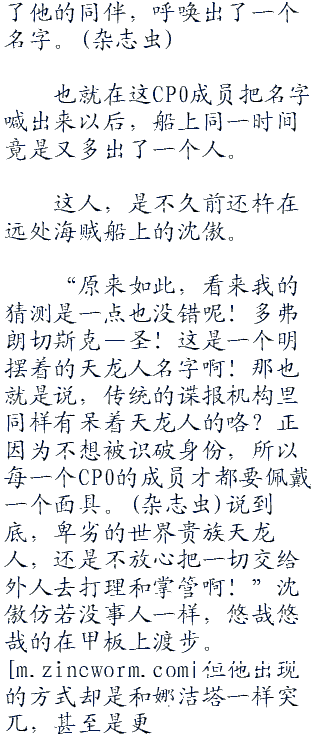 了他的同伴，呼唤出了一个
名字。(杂志虫)
也就在这CP0成员把名字
喊出来以后，船上同一时间
竟是又多出了一个人。
这人，是不久前还杵在
远处海贼船上的沈傲。
“原来如此，看来我的
猜测是一点也没错呢！多弗
朗切斯克—圣！这是一个明
摆着的天龙人名字啊！那也
就是说，传统的谍报机构里
同样有呆着天龙人的咯？正
因为不想被识破身份，所以
每一个CP0的成员才都要佩戴
一个面具。(杂志虫)说到
底，卑劣的世界贵族天龙
人，还是不放心把一切交给
外人去打理和掌管啊！”沈
傲仿若没事人一样，悠哉悠
哉的在甲板上渡步。
[m.zincworm.com]但他出现
的方式却是和娜洁塔一样突
兀，甚至是更